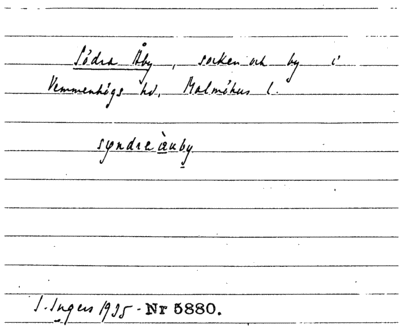 Södra Åby, socken och by i
Vemmenhögs hd, Malmöhus l.
syndre àuby
I. Ingers 1935 - Nr 5880.